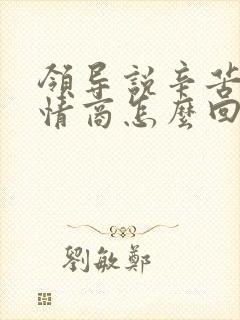 領导説辛苦
情商怎麽回
劉敏鄭